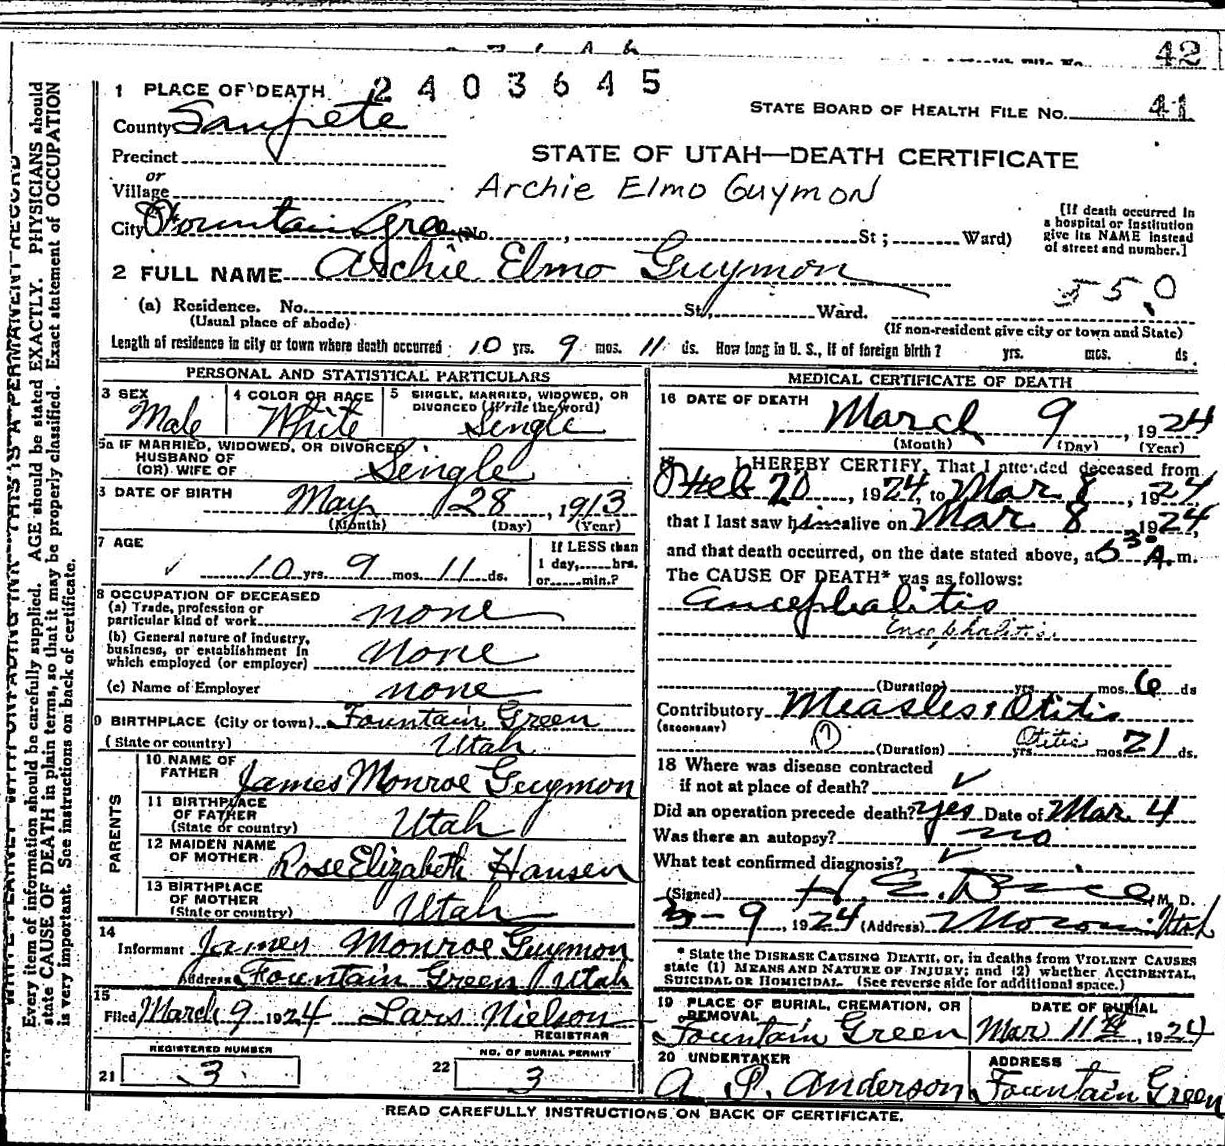 42
1 PLACE OF DEATH 2403645
STATE BOARD OF HEALTH FILE No. 41
County Sanpete
Precinct
STATE OF UTAH—DEATH CERTIFICATE
or
Village
Archie Elmo Guymon
City Fountain Green (No. , St ; Ward)
[If death occurred in a hospital or institution give its NAME instead of street and number.]
2 FULL NAME Archie Elmo Guymon
550
(a) Residence. No. St., Ward.
(Usual place of abode)
(If non-resident give city or town and State)
Length of residence in city or town where death occurred 10 yrs. 9 mos. 11 ds. How long in U. S., if of foreign birth? yrs. mos. ds.
PERSONAL AND STATISTICAL PARTICULARS
3 SEX Male
4 COLOR OR RACE White
5 SINGLE, MARRIED, WIDOWED, OR DIVORCED (Write the word) Single
5a IF MARRIED, WIDOWED, OR DIVORCED
HUSBAND OF
(OR) WIFE OF Single
DATE OF BIRTH May 28, 1913
(Month) (Day) (Year)
7 AGE
10 yrs. 9 mos. 11 ds.
If LESS than
1 day, hrs.
or min.?
8 OCCUPATION OF DECEASED
(a) Trade, profession or
particular kind of work none
(b) General nature of industry,
business, or establishment in
which employed (or employer) none
(c) Name of Employer none
9 BIRTHPLACE (City or town) Fountain Green
(State or country) Utah
PARENTS
10 NAME OF FATHER James Monroe Guymon
11 BIRTHPLACE OF FATHER
(State or country) Utah
12 MAIDEN NAME OF MOTHER Rose Elizabeth Hansen
13 BIRTHPLACE OF MOTHER
(State or country) Utah
14
Informant James Monroe Guymon
Address Fountain Green Utah
15
Filed March 9 1924 Lars Nielson
REGISTRAR
REGISTERED NUMBER
21 3
NO. OF BURIAL PERMIT
22 3
MEDICAL CERTIFICATE OF DEATH
16 DATE OF DEATH
March 9, 1924
(Month) (Day) (Year)
I HEREBY CERTIFY, That I attended deceased from
Feb 20, 1924, to Mar 8, 1924
that I last saw him alive on Mar 8 1924,
and that death occurred, on the date stated above, at 6 30 A. m.
The CAUSE OF DEATH* was as follows:
Encephalitis
Encephalitis
(Duration) yrs. mos. 6 ds
Contributory Measles & Otitis
(SECONDARY)
(1) (Duration) yrs. Otitis mos. 21 ds.
18 Where was disease contracted
if not at place of death?
Did an operation precede death? yes Date of Mar. 4
Was there an autopsy? no
What test confirmed diagnosis?
(Signed) M. D.
3-9, 1924 (Address) Moroni Utah
* State the DISEASE CAUSING DEATH, or, in deaths from VIOLENT CAUSES
state (1) MEANS AND NATURE OF INJURY; and (2) whether ACCIDENTAL,
SUICIDAL OR HOMICIDAL. (See reverse side for additional space.)
19 PLACE OF BURIAL, CREMATION, OR REMOVAL
Fountain Green
DATE OF BURIAL
Mar 11th, 1924
20 UNDERTAKER
A. P. Anderson
ADDRESS
Fountain Green
READ CAREFULLY INSTRUCTIONS ON BACK OF CERTIFICATE.
Every item of information should be carefully supplied. AGE should be stated EXACTLY. PHYSICIANS should
state CAUSE OF DEATH in plain terms, so that it may be properly classified. Exact statement of OCCUPATION
is very important. See instructions on back of certificate.